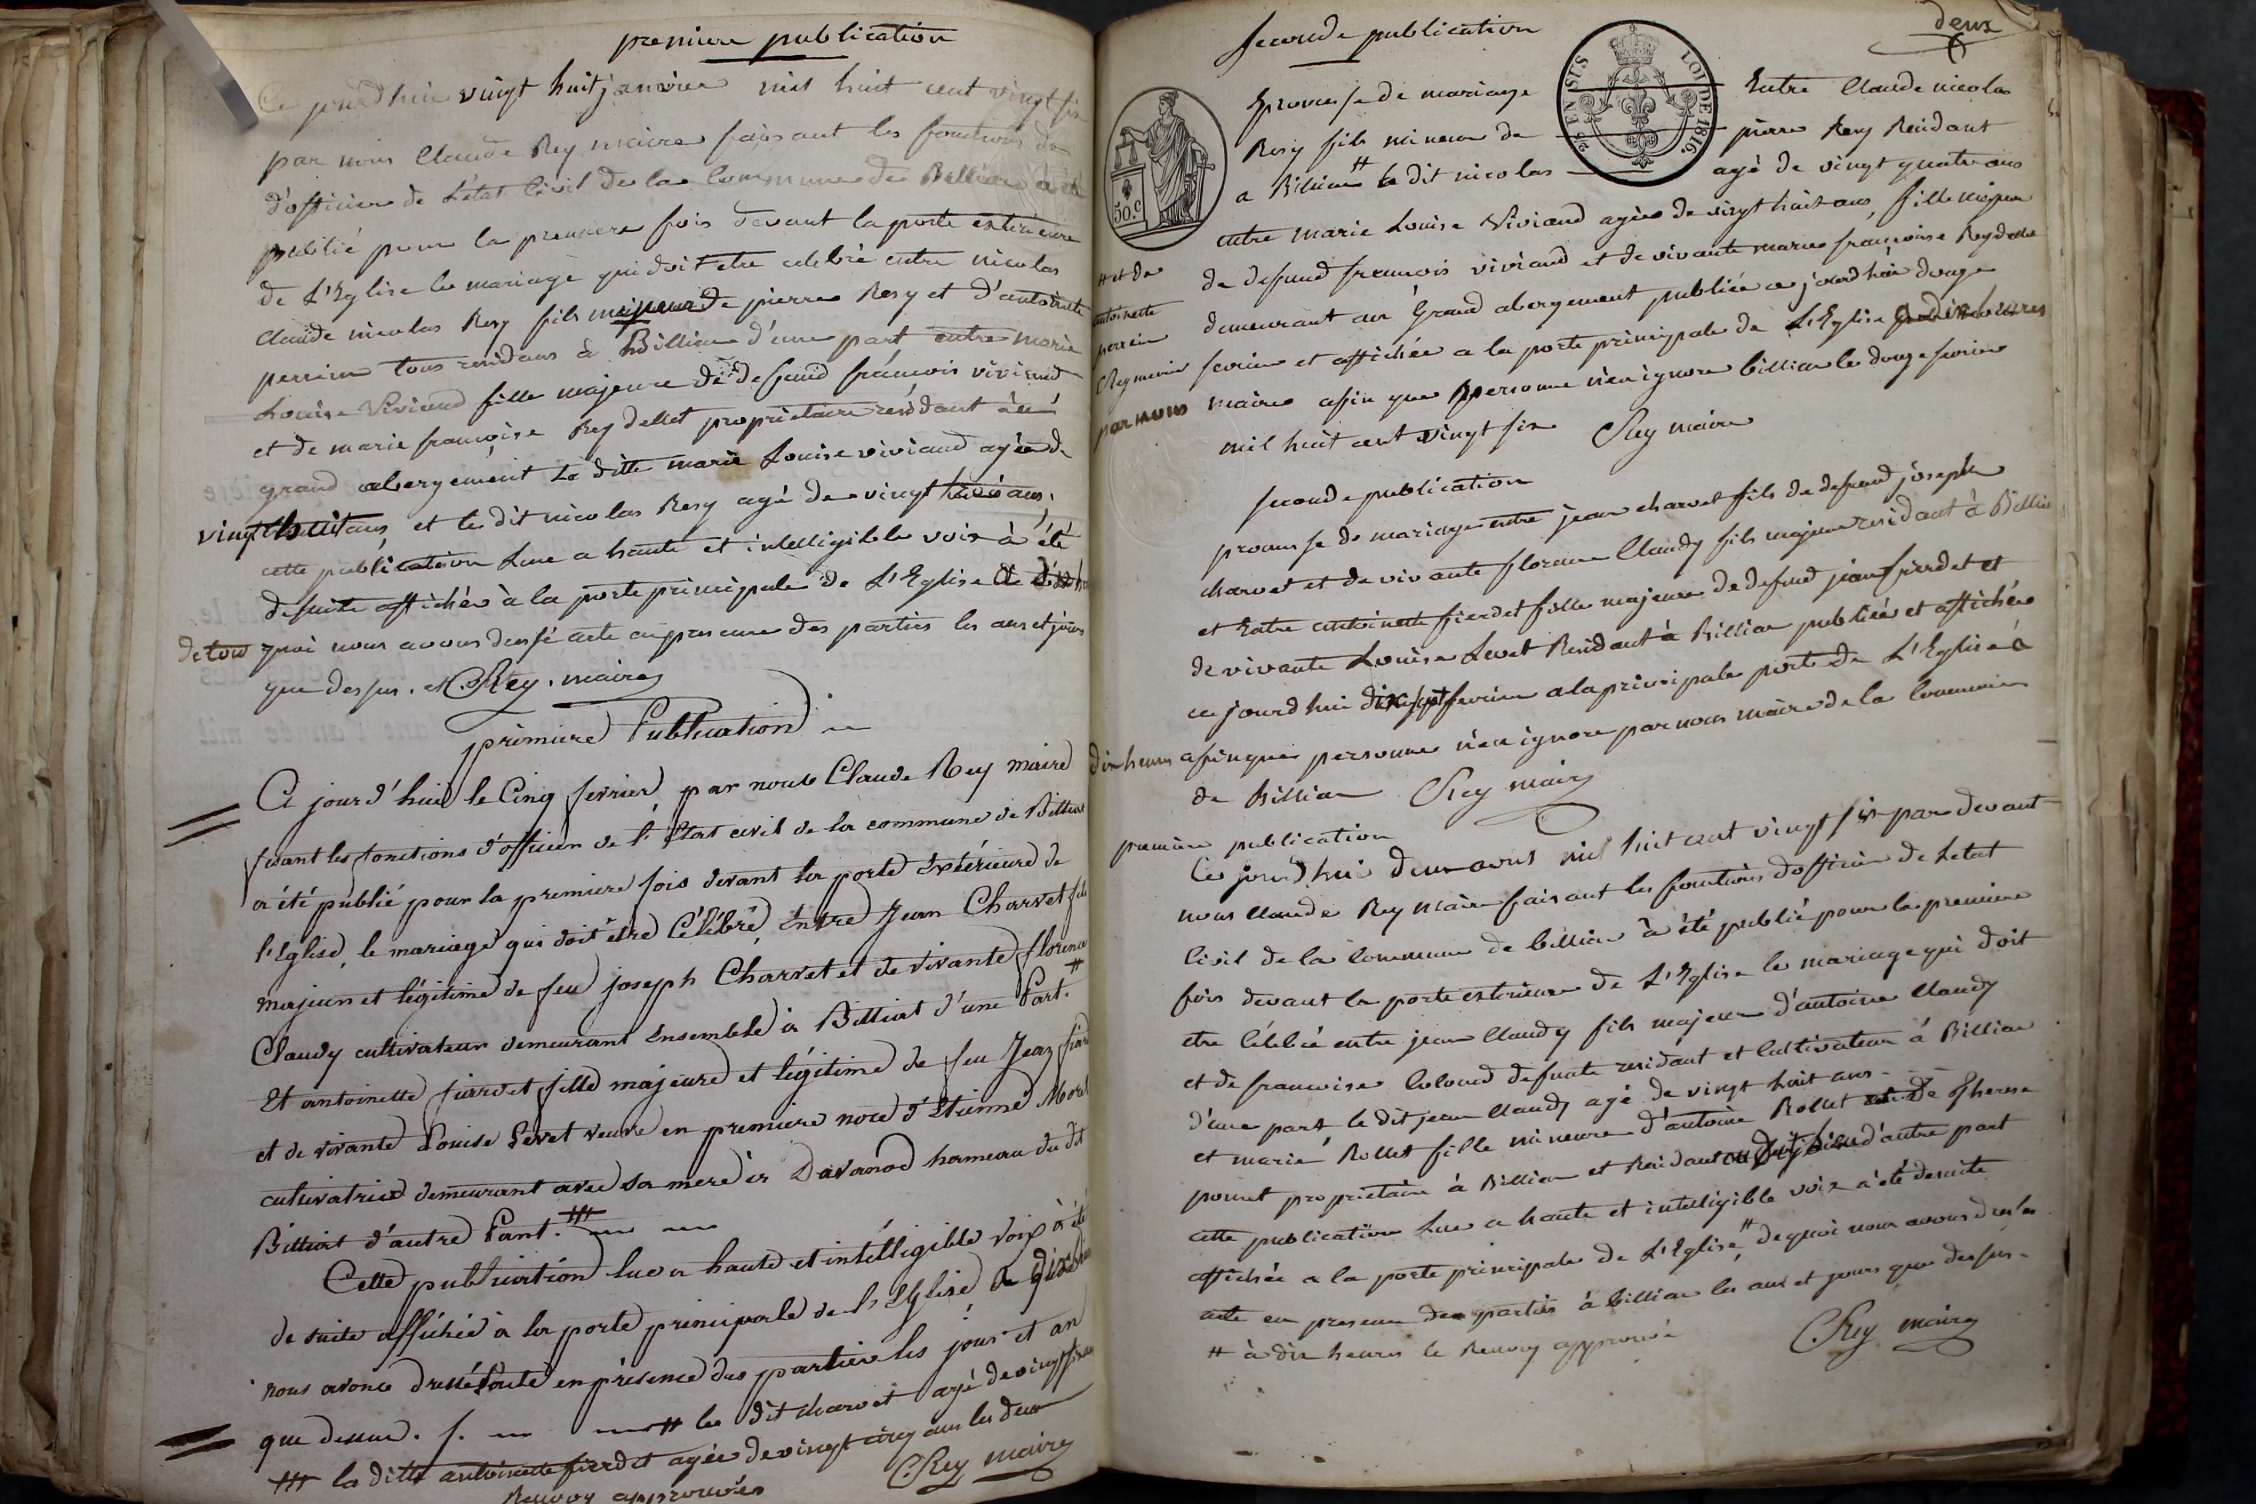 premiere publication
Ce jourdhui vingt huit janvier mil huit cent vingt six
par nous Claude Rey maire faisant les fonctions de
d'officier de l'état Civil de la Commune de Billiat a été
publié pour la premiere fois devant la porte exterieure
de L'Eglise le mariage qui doit etre celebré entre nicolas
Claude nicolas Rosy fils mineur de pierre Rosy et d'antoinette
perrin tous residans à Billiat d'une part entre marie
Louise Viviand fille majeure de defund françois viviand
et de marie françoise Reydellet proprietaire residant au
grand abergement La ditte marie Louise viviand agée de
vingt huit ans, et le dit nicolas Rosy agé de vingt
cette publication Lue a haute et intelligible voix à été
desuite affichée à la porte principale de L'Eglise
de tou quoi nous avons dressé acte en presence des parties les ans et jours
que dessus. et CRey. maire
premiere Publication
Ce jour d'hui le Cinq fevrier, par nous Claude Rey maire
fesant les fonctions d'officier de l'Etat civil de la commune de Billiat
a été publié pour la premiere fois devant la porte Extérieure de
l'Eglise, le mariage qui doit être Célébré, Entre Jean Charvet fils
majeur et légitime de feu joseph Charvet et de vivante florence
Claudy cultivateur demeurant Ensemble à Billiat d'une Part. #
Et antoinette fierdet fille majeure et légitime de feu Jean fierdet
et de vivante Louise Levet veuve en premiere noce d'Etienne Morel
cultivatrice demeurant avec sa mere à Davanod hameau du dit
Billiat d'autre Part. ###
Cette publication lue a haute et intélligible voix à été
de suite affichée à la porte principale de l'Eglise, a dix heures
nous avons dressé acte en présence des parties les jour et an
que dessus. # le dit charvet agé de vingt six ans
### la ditte antoinette fierdet agée de vingt cinq ans les deux
Renvoy approuvés CRey maire
deux
seconde publication
2/5 EN SUS LOI DE 1816.
50.c
promesse de mariage Entre Claude nicolas
Rosy fils mineur de pierre Rosy Residant
a Billiat # le dit nicolas agé de vingt quatre ans
entre marie Louise Viviand agée de vingt huit ans, fille majeure
de defund francois viviand et de vivante marie françoise Reydellet
demeurant au Grand abergement publiée ce jourd hui douze
fevrier et affichée a la porte principale de L'Eglise a dix heures
# et de
antoinette
perrin
CRey maire
par nous maire afin que personne n'en ignore billiat le douze fevrier
mil huit cent vingt six CRey maire
seconde publication
promesse de mariage entre jean charvet fils de defund joseph
charvet et de vivante florence Claudy fils majeur residant à Billiat
et Entre antoinette fierdet fille majeure de defund jean fierdet et
de vivante Louise Levet Residant à Billiat publiée et affichée
ce jourd hui dix sept fevrier a la principale porte de L'Eglise à
dix heures afin que personne n'en ignore par nous maire de la Commune
de Billiat CRey maire
premiere publication
Ce jourd hui deux avril mil huit cent vingt six par devant
nous Claude Rey maire faisant les fonctions d'officier de Letat
Civil de la Commune de billiat à été publié pour la premiere
fois devant la porte exterieure de L'Eglise le mariage qui doit
etre Célébré entre jean Claudy fils majeur d'antoine Claudy
et de francoise Coloud defunte residant et Cultivateur à Billiat
d'une part le dit jean Claudy agé de vingt huit ans
et marie Rollet fille mineure d'antoine Rollet et de Therese
poncet proprietaire à Billiat et Residant au dit lieu d'autre part
cette publication Lue a haute et intelligible voix a été desuite
affichée a la porte principale de L'Eglise, # de quoi nous avons dressé
acte en presence des parties à billiat les ans et jours que dessus
# à dix heures le Renvoy approuvé CRey maire